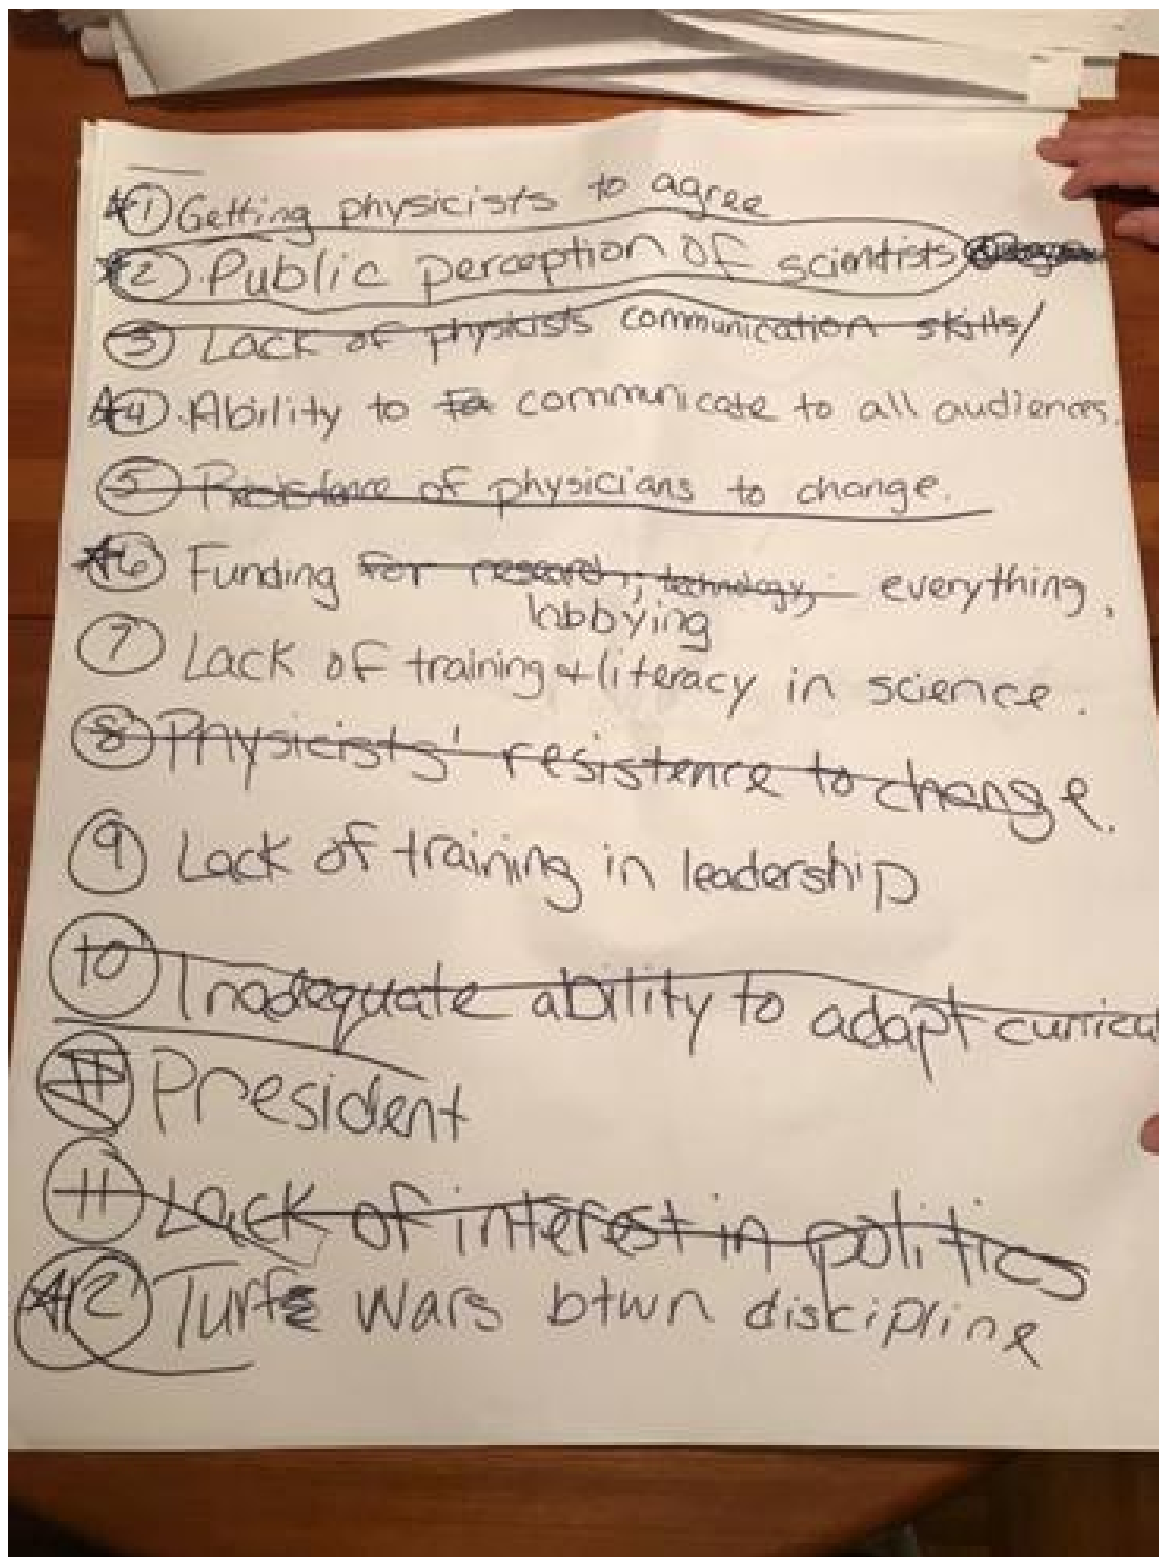 1 Getting physicists to agree
2. Public perception of scientists
3 Lack of physicists communication skills/
4. Ability to Fa communicate to all audiences.
5 Resistance of physicians to change.
6 Funding for research, technology, everything,
lobbying
7 Lack of training + literacy in science.
8 Physicists' resistence to change.
9 Lack of training in leadership
10 Inadequate ability to adapt curricul
11 President
11 Lack of interest in politics
12 Turf Wars btwn discipline